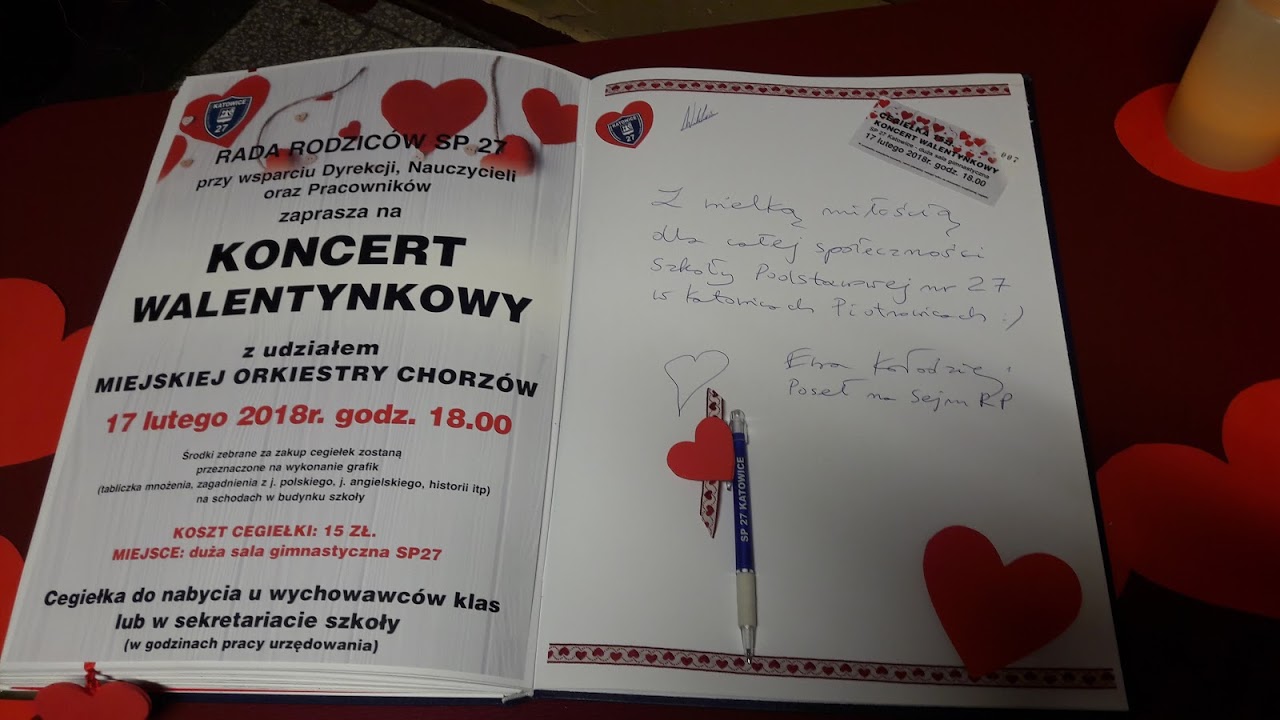 KATOWICE
27
RADA RODZICÓW SP 27
przy wsparciu Dyrekcji, Nauczycieli
oraz Pracowników
zaprasza na
KONCERT
WALENTYNKOWY
z udziałem
MIEJSKIEJ ORKIESTRY CHORZÓW
17 lutego 2018r. godz. 18.00
Środki zebrane za zakup cegiełek zostaną
przeznaczone na wykonanie grafik
(tabliczka mnożenia, zagadnienia z j. polskiego, j. angielskiego, historii itp)
na schodach w budynku szkoły
KOSZT CEGIEŁKI: 15 ZŁ.
MIEJSCE: duża sala gimnastyczna SP27
Cegiełka do nabycia u wychowawców klas
lub w sekretariacie szkoły
(w godzinach pracy urzędowania)
KATOWICE
27
CEGIEŁKA
KONCERT WALENTYNKOWY
SP 27 Katowice - duża sala gimnastyczna
17 lutego 2018r. godz. 18.00
Z wielką miłością
dla całej społeczności
Szkoły Podstawowej nr 27
w Katowicach Piotrowicach :)
Ewa Kołodziej
Poseł na Sejm RP
SP 27 KATOWICE